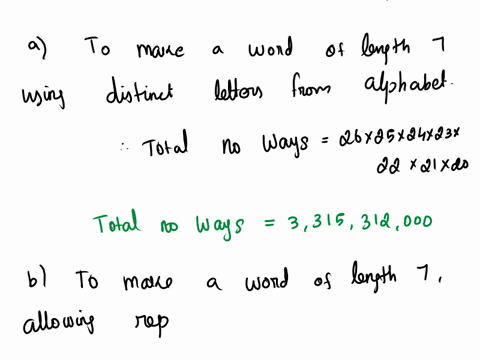 a) To make a word of length 7
using distinct letters from alphabet.
∴ Total no ways = 26×25×24×23×
22×21×20
Total no ways = 3,315,312,000
b) To make a word of length 7,
allowing rep